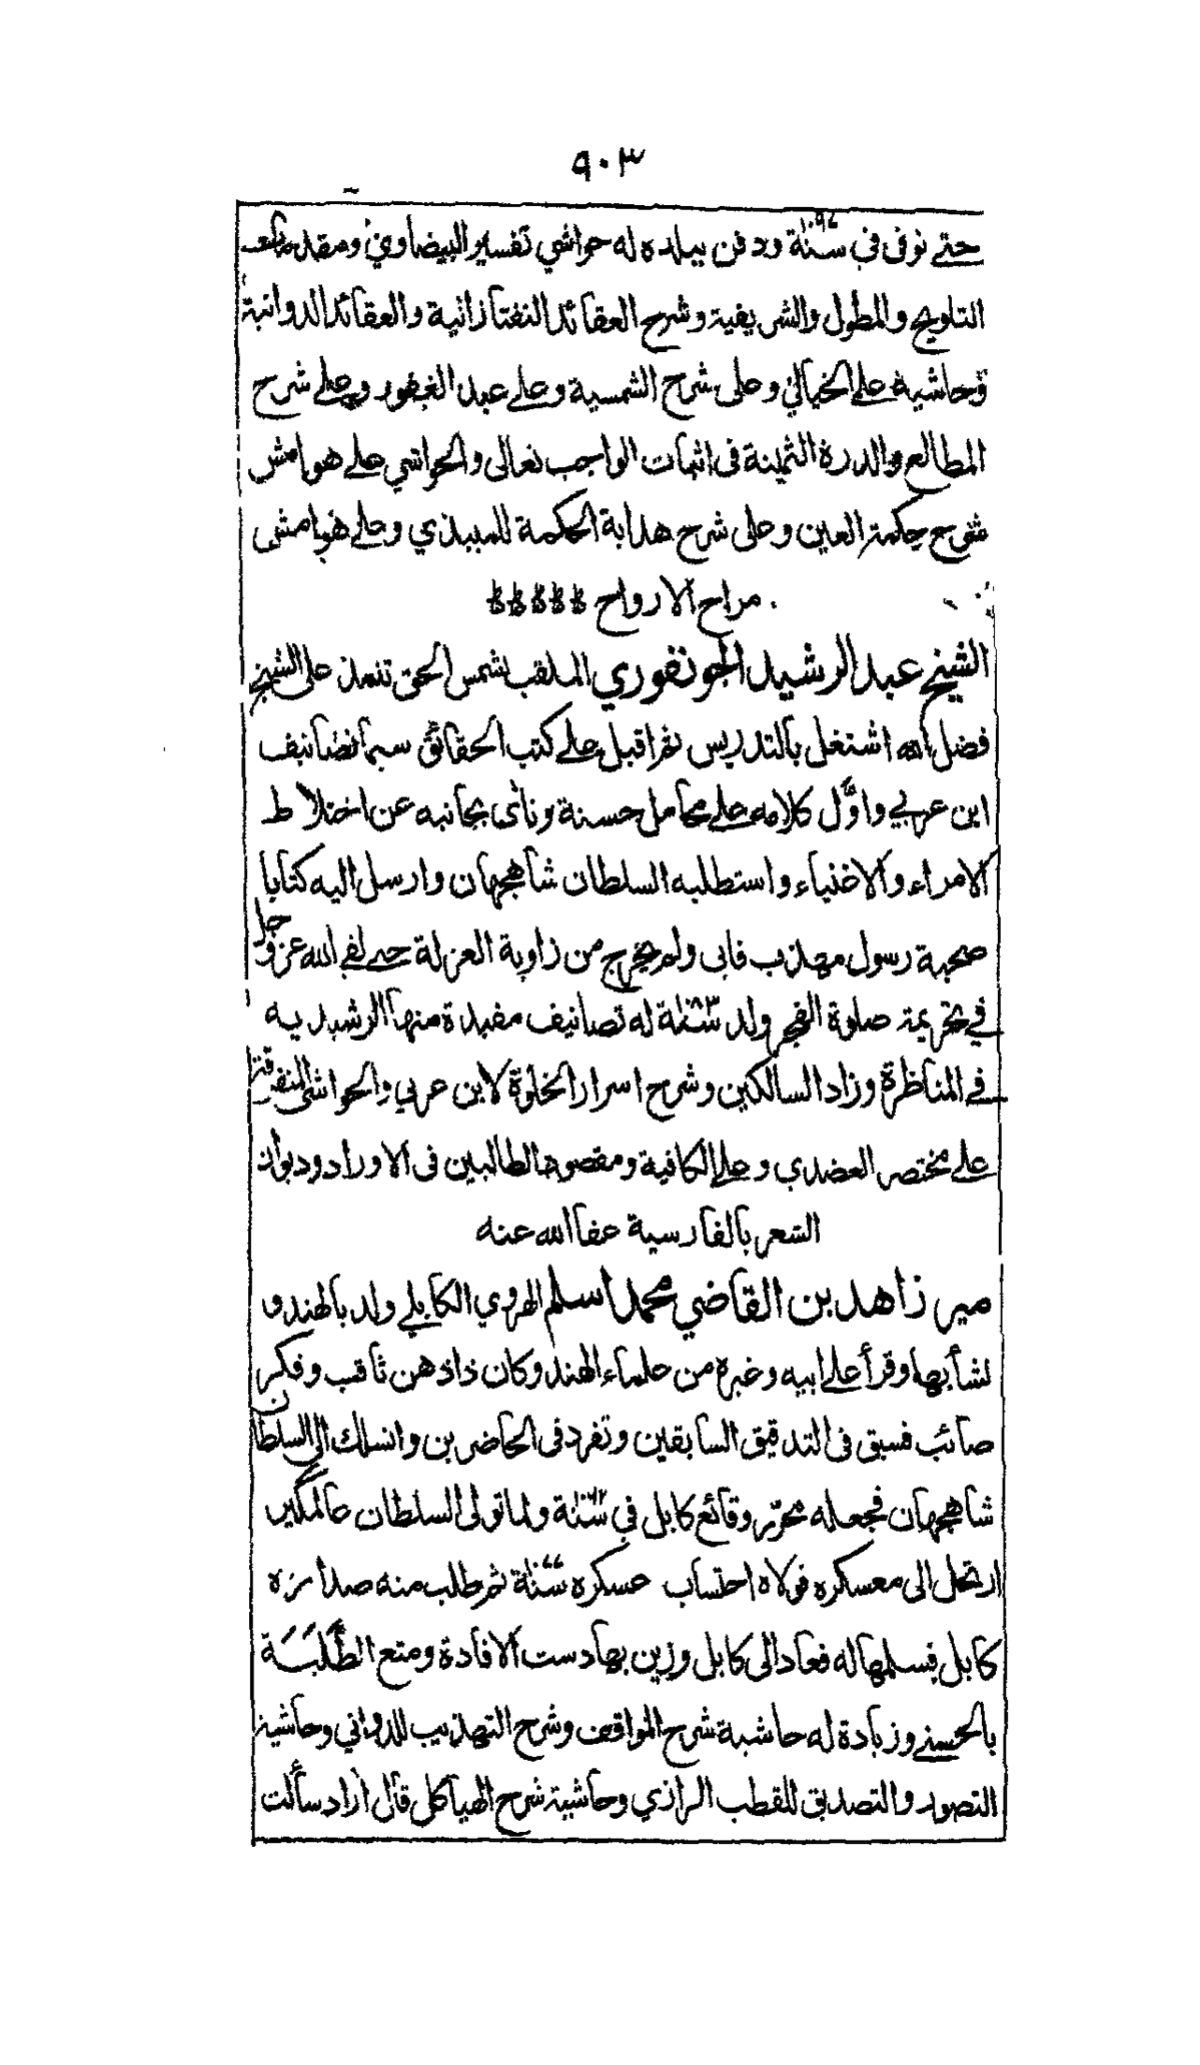 ٩٠٣
حتى توفى في سنة ١٠٩٧ ودفن ببلده له حواشي تفسير البيضاوي ومقدمات
التلويح والمطول والشريفية وشرح العقائد التفتازانية والعقائد الدوانية
وحاشية على الخيالي وعلى شرح الشمسية وعلى عبد الغفور وعلى شرح
المطالع والدرة الثمينة فى اثبات الواجب تعالى والحواشي على هوامش
شرح حكمة العين وعلى شرح هداية الحكمة للميبذي وعلى هوامش
مراح الارواح
الشيخ عبد الرشيد الجونفوري الملقب بشمس الحق تلمذ على الشيخ
فضل الله اشتغل بالتدريس ثم اقبل على كتب الحقائق سيما تصانيف
ابن عربي واوَّل كلامه على محامل حسنة ونأى بجانبه عن اختلاط
الامراء والاغنياء واستطلبه السلطان شاهجهان وارسل اليه كتابا
صحبة رسول مهذب فابى ولم يخرج من زاوية العزلة حتى لقي الله عز وجل
في تحريمة صلوة الفجر ولد سنة ١٠٨٣ له تصانيف مفيدة منها الرشيدية
في المناظرة وزاد السالكين وشرح اسرار الخلوة لابن عربي والحواشى المتفرقة
على مختصر العضدي وعلى الكافية ومقصود الطالبين فى الاوراد وديوان
الشعر بالفارسية عفا الله عنه
مير زاهد بن القاضي محمد اسلم الهروي الكابلي ولد بالهند و
نشأ بها وقرأ على ابيه وغيره من علماء الهند وكان ذا ذهن ثاقب وفكر
صائب فسبق فى التدقيق السابقين وتفرد فى الحاضرين وانسلك الى السلطان
شاهجهان فجعله محرّر وقائع كابل في سنة ١٠٦٤ ولما تولى السلطان عالمگير
ارتحل الى معسكره فولاه احتساب عسكره سنة ١٠٧٧ ثم طلب منه صدارة
كابل فسلمها له فعاد الى كابل وزين بها دست الافادة ومتع الطَّلَبَة
بالحسنى وزيادة له حاشية شرح المواقف وشرح التهذيب للدواني وحاشية
التصور والتصديق للقطب الرازي وحاشية شرح الهياكل قال آزاد سألت